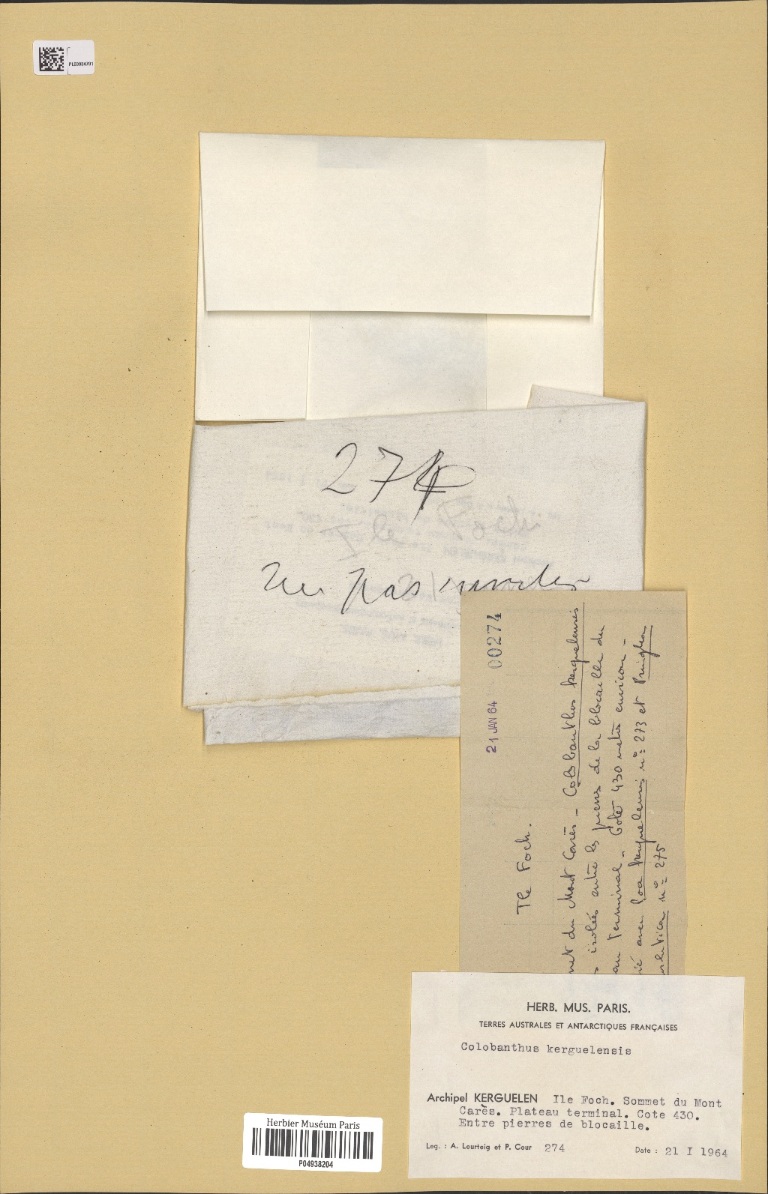 274
Ne pas
00274
21 JAN 64
Ile Foch.
du Mont Carès - Colobanthus kerguelensis
isolés entre les pierres de la blocaille du
Terminal - Cote 430 mètres environ -
avec Poa kerguelensis n° 273 et Pringlea
n° 275
HERB. MUS. PARIS.
TERRES AUSTRALES ET ANTARCTIQUES FRANÇAISES
Colobanthus kerguelensis
Archipel KERGUELEN Ile Foch. Sommet du Mont
Carès. Plateau terminal. Cote 430.
Entre pierres de blocaille.
Leg. : A. Lourteig et P. Cour 274
Date : 21 I 1964
Herbier Muséum Paris
P04938204